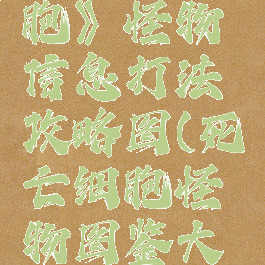 胞》怪物
信息打法
攻略图(死
亡细胞怪
物图鉴大